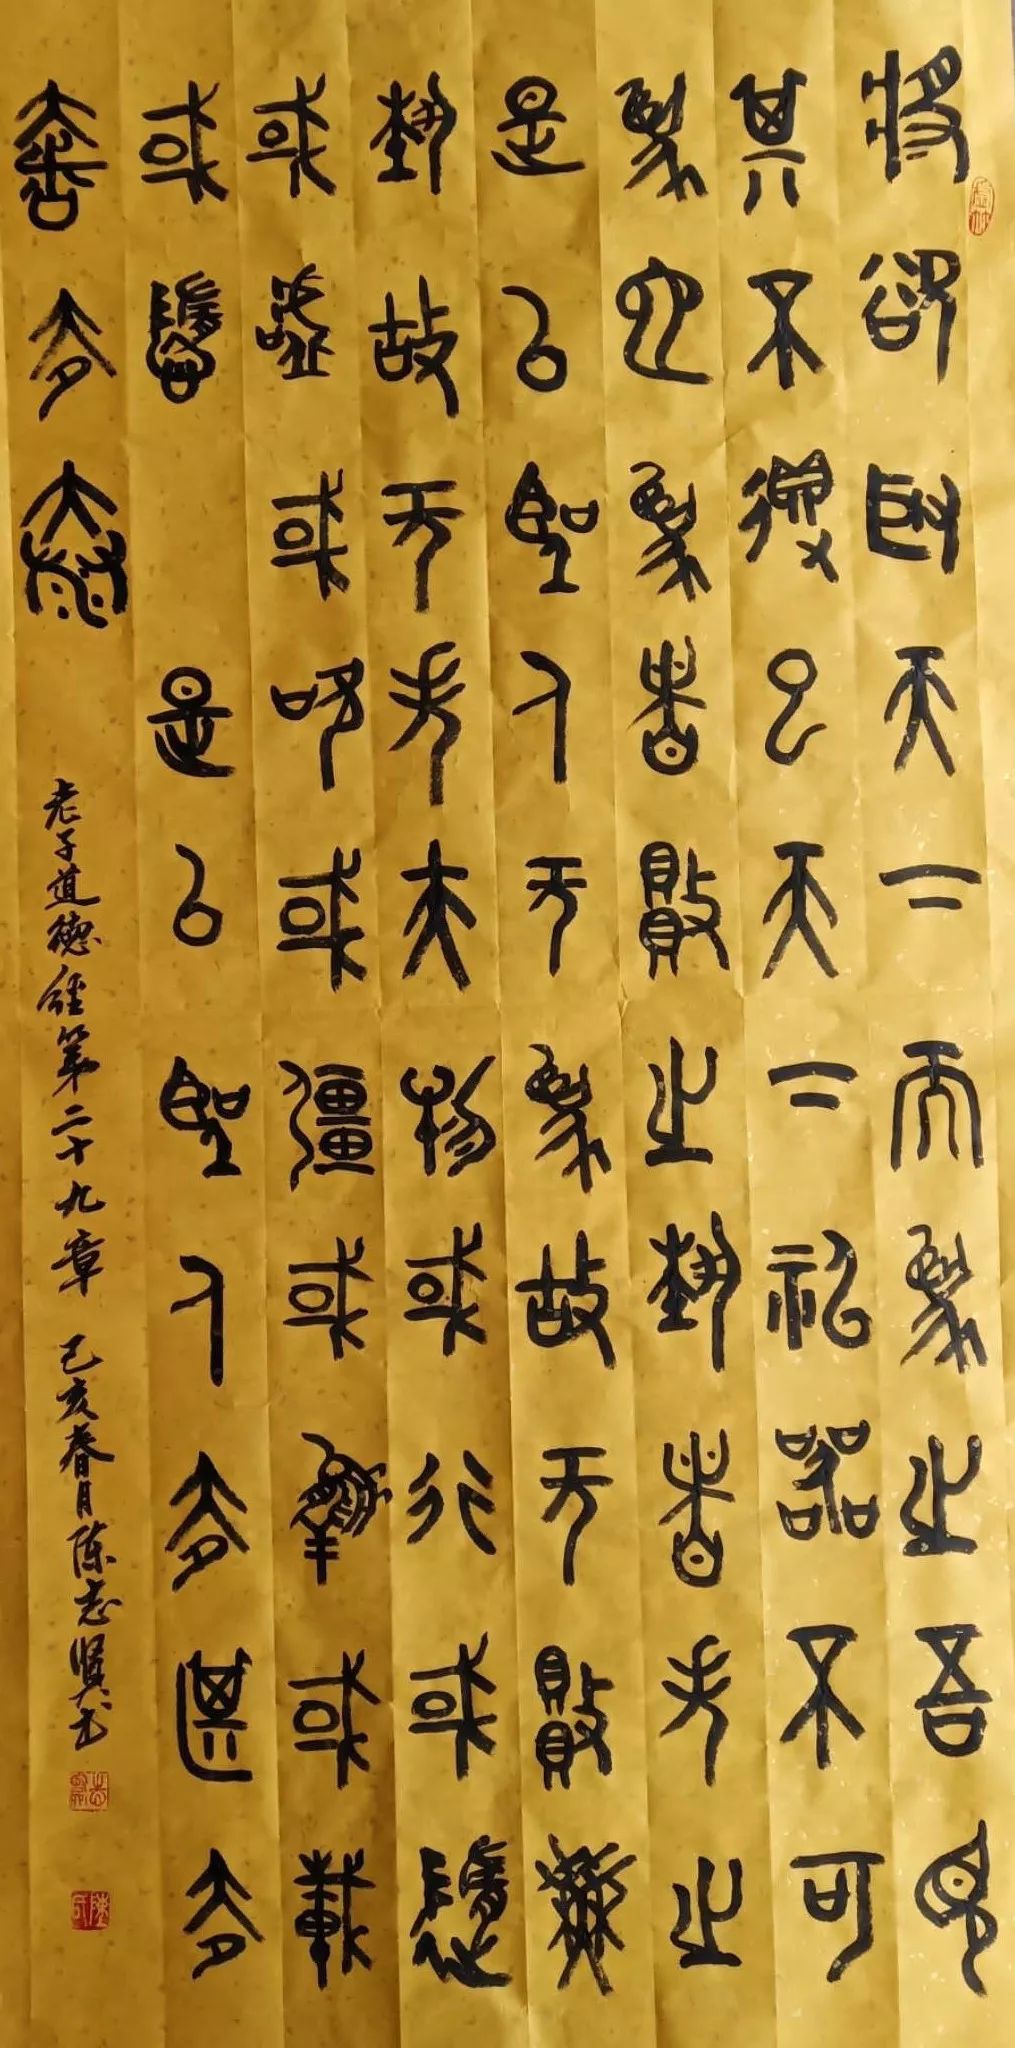 將欲取天下而為之吾見
其不得已天下神器不可
為也為者敗之執者失之
是以聖人无為故无敗無
執故无失夫物或行或隨
或噓或吹或彊或羸或載
或隳是以聖人去甚去
奢去泰
老子道德經第二十九章 己亥春月陈志賢书